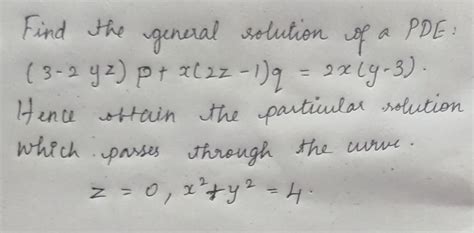 Find the general solution of a PDE:
(3-2yz)p+x(2z-1)q = 2x(y-3).
Hence obtain the particular solution
which passes through the curve.
z = 0, x²+y² = 4.